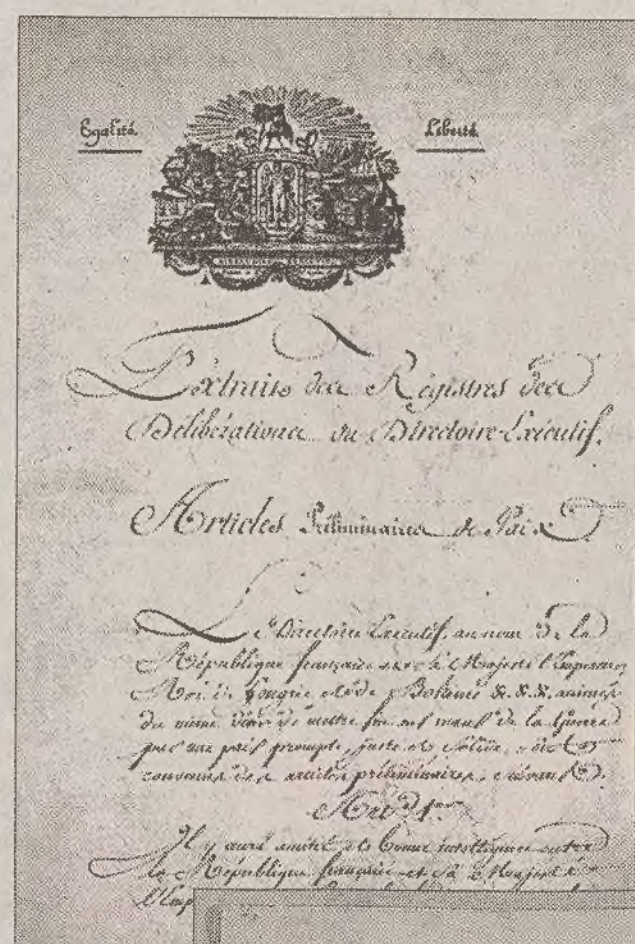 Egalité. Liberté.
DIRECTOIRE EXECUTIF
Extraits des Régistres des
Délibérations du Directoire-Exécutif.
Articles Préliminaires de Paix
Le Directoire Exécutif, au nom de la
République française avec Sa Majesté l'Empereur
Roi de hongrie et de Bohême &.&.&. animés
du même désir de mettre fin aux maux de la Guerre
par une paix prompte, juste et solide, sont
convenus des articles préliminaires, suivants.
Art. 1er
Il y aura amitié et bonne intelligence entre
la République française et Sa Majesté
l'Emp